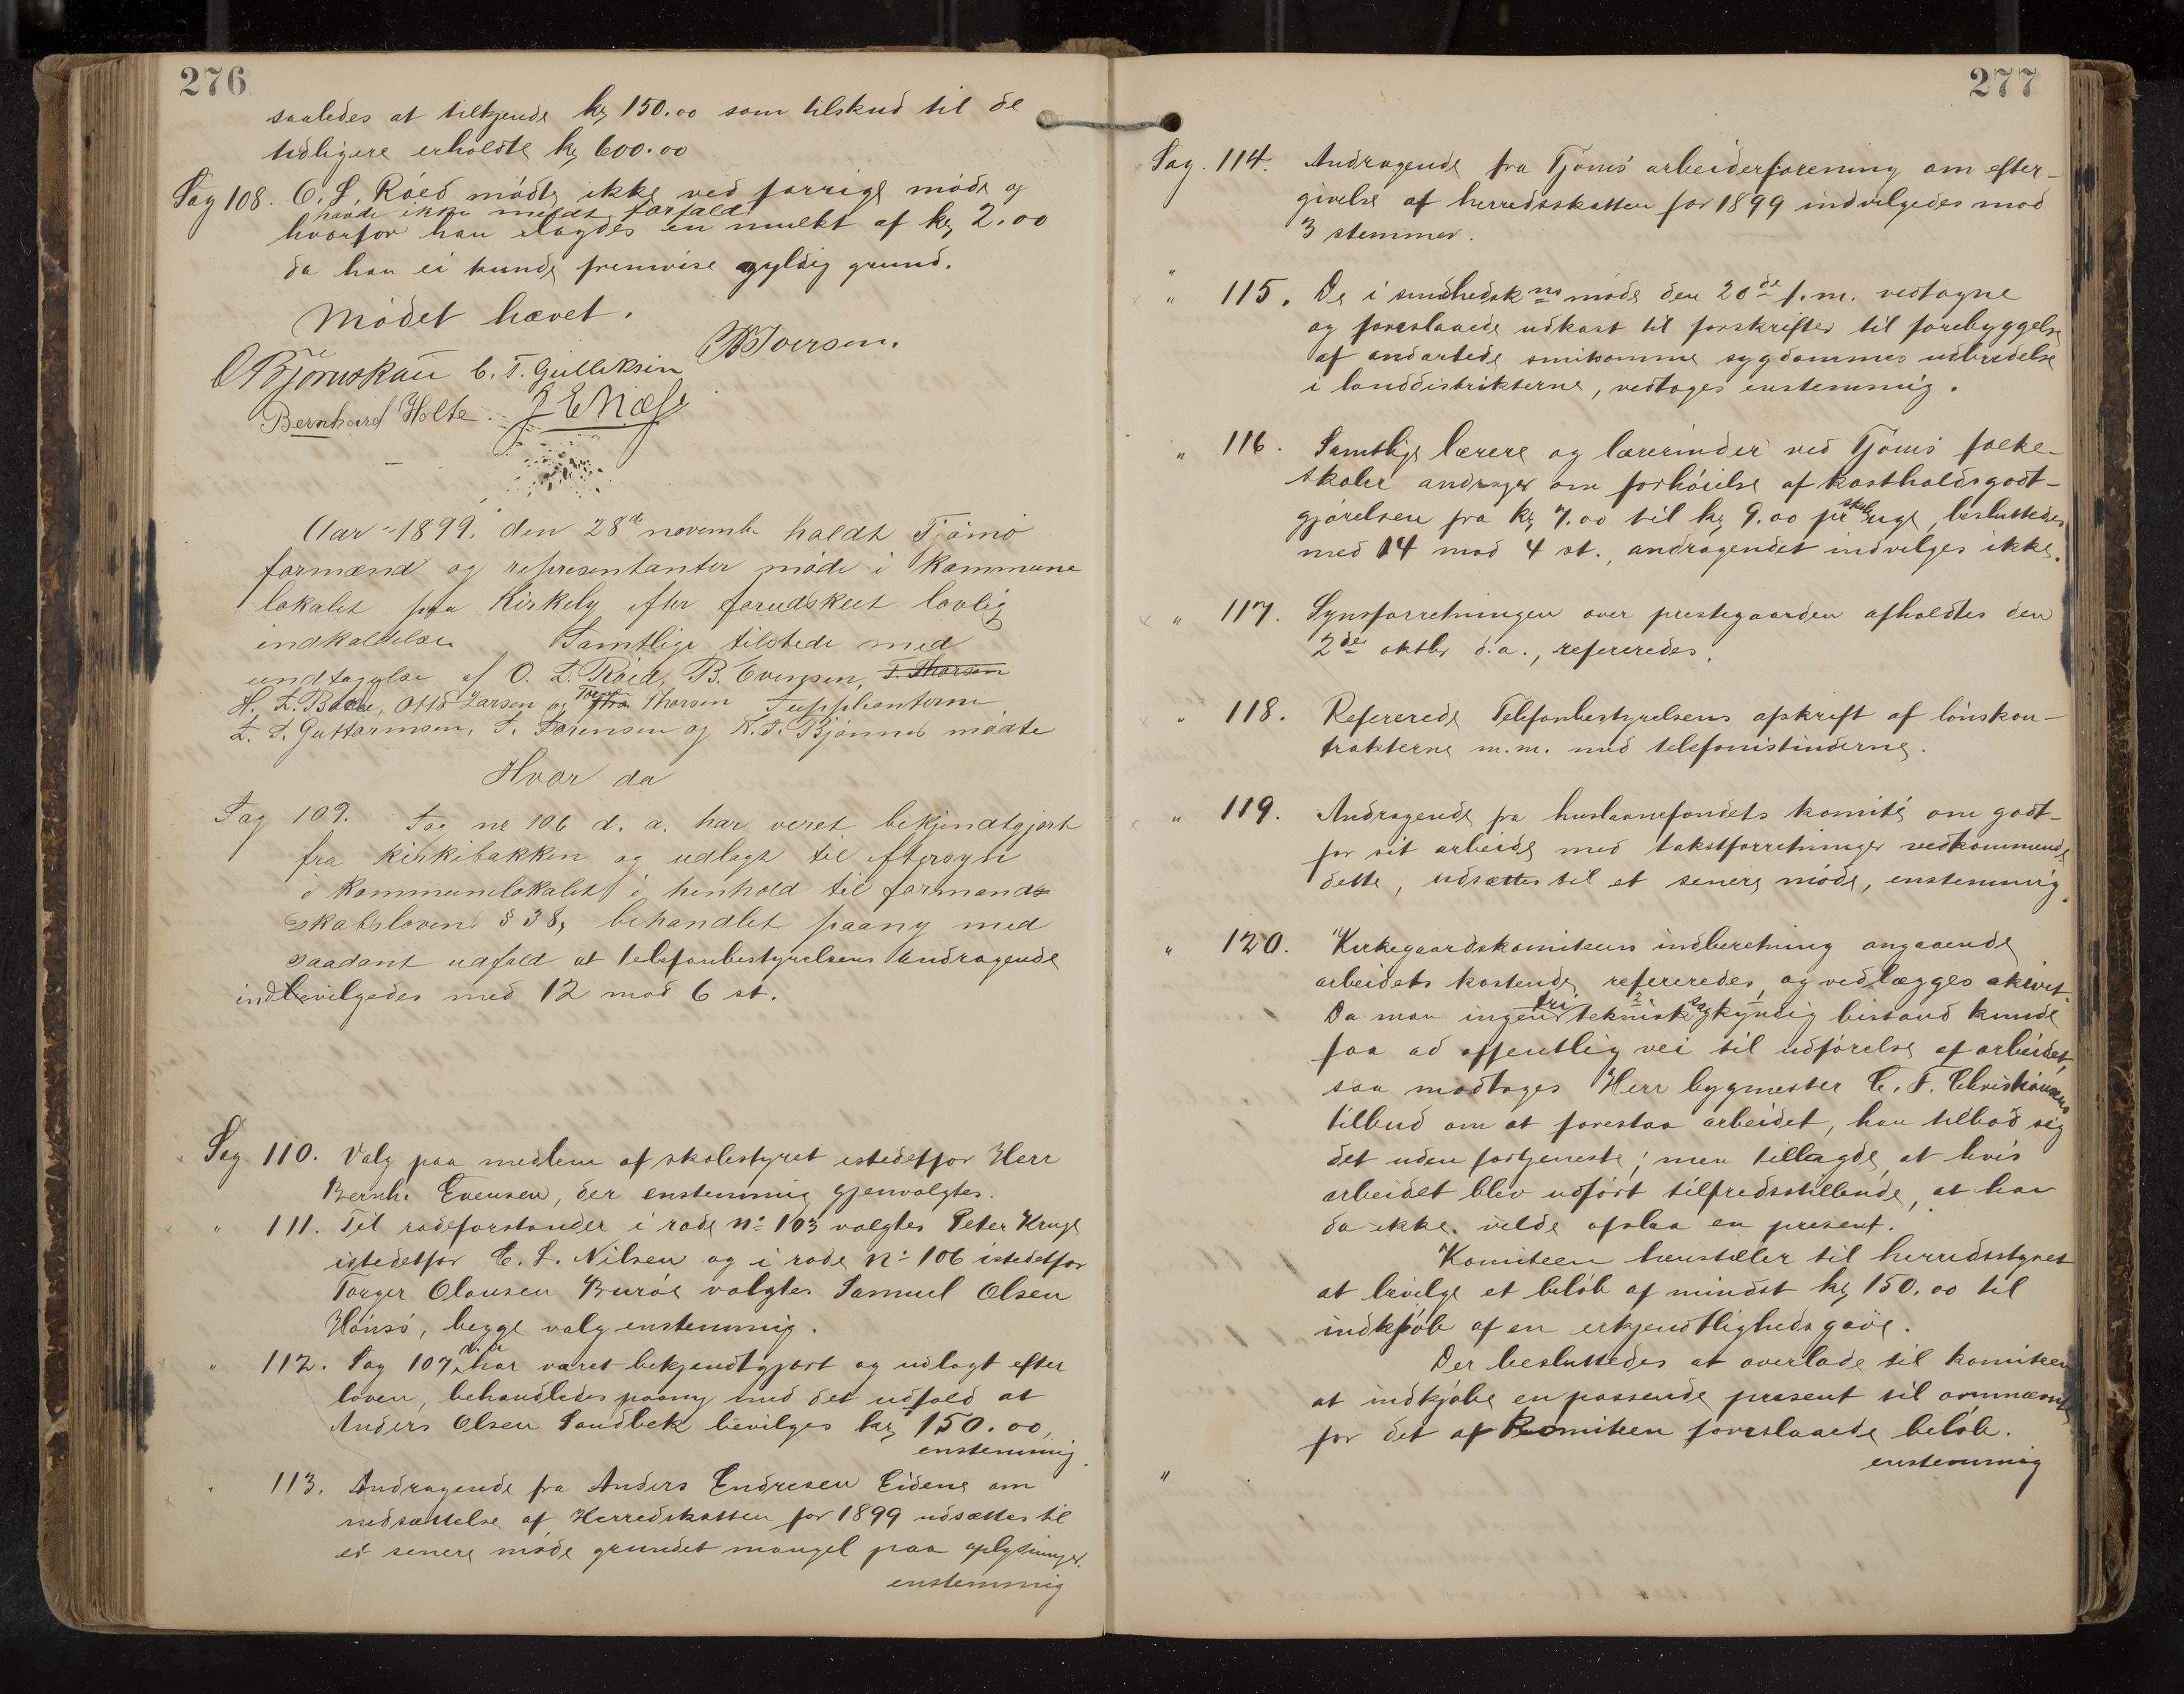 276
saaledes at tilkjende kr 150.00 som tilskud til de
tidligere erholdte kr 600.00
Sag 108. O. L. Röed mödte ikke ved forrige möde og
havde ikke meldt forfald
hvorfor han ilagdes en mulkt af kr 2.00
da han ei kunde fremvise gyldig grund.
Mödet hævet.
Iversen.
OBjörnskau C. T. Gulliksen
Bernhard Holte. J E Næss
Aar 1899, den 28de novembr holdt Tjömö
formænd og representanter möde i Kommune
lokalet paa Kirkely efter forudskeet lovlig
indkaldelse. Samtlige tilstede med
undtagelse af O. L. Röed, B. Evensen, T. Thorsen
H. L. Bache, Otto Larsen og Thorsen Supplianterne
L. P. Guttormsen, S. Sörensen og K. J. Björnnes mödte
Hvor da
Sag 109. Sag nr 106 d. a. har veret bekjendtgjort
fra kirkebakken og udlagt til eftersyn
i Kommunelokalet i henhold til formands
skabsloven § 38, behandlet paany med
saadant udfald at telefonbestyrelsens andragende
indbevilgedes med 12 mod 6 st.
Sag 110. Valg paa medlem af skolestyret istedetfor Herr
Bernh. Evensen, der enstemmig gjenvalgtes.
" 111. Til rodeforstander i rode No 103 valgtes Peter Kruge
istedetfor C. L. Nilsen og i rode No 106 istedetfor
Torger Olausen Buröe valgtes Samuel Olsen
Hönsö, begge valg enstemmig.
" 112. Sag 107 d. a. har været bekjendtgjort og udlagt efter
loven, behandledes paany med det udfald at
Anders Olsen Sandbek bevilges kr 150.00,
enstemmig.
" 113. Andragende fra Anders Endresen Eidene om
nedsættelse af Herredskatten for 1899 udsættes til
et senere möde grundet mangel paa oplysninger.
enstemmig
277
Sag. 114. Andragende fra Tjömö arbeiderforening om efter-
givelse af herredsskatten for 1899 indvilgedes mod
3 stemmer.
" 115. De i sundhedsk ns möde den 20de f. m. vedtagne
og foreslaaede udkast til forskrifter til forebyggelse
af ondartede smitsomme sygdommes udbredelse
i landdistrikterne, vedtages enstemmig.
" 116. Samtlige lærere og lærerinder ved Tjömö folke-
skoler andrager om forhöielse af kostholdsgodt-
gjörelsen fra kr 7.00 til kr 9.00 pr skoleuge, besluttedes
med 14 mod 4 st., andragendet indvilges ikke.
" 117. Synsforretningen over prestegaarden afholdtes den
2de oktbr d. a., refereredes.
" 118. Refererede Telefonbestyrelsens afskrift af lönskon-
trakterne m. m. med telefonistinderne.
" 119. Andragende fra huslaanefondets komité om godt-
for sit arbeide med takstforretninger vedkommende
dette, udsættes til et senere möde, enstemmig.
" 120. Kirkegaardskomiteens indberetning angaaende
arbeidets kostende refereredes, og vedlægges akivet.
Da man ingen fri teknisk sagkyndig bistand kunde
faa ad offentlig vei til udförelse af arbeidet,
saa modtages Herr bygmester C. F. Christiansens
tilbud om at forestaa arbeidet, han tilböd sig
det uden fortjeneste; men tillagde, at hvis
arbeidet blev udfört tilfredsstillende, at han
da ikke vilde afslaa en present.
Komiteen henstiller til herredsstyret
at bevilge et belöb af mindst kr 150.00 til
indkjöb af en erkjendtlighedsgave.
Der besluttedes at overlade til komiteen
at indkjöbe en passende present til omnævnte
for det af komiteen foreslaaede belöb.
enstemmig
"